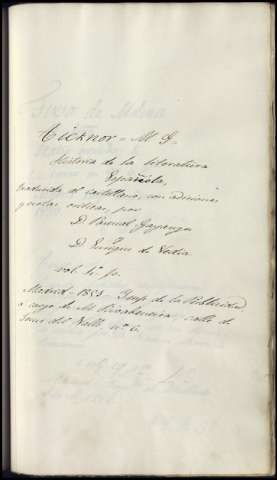 Ticknor - M. G.
Historia de la literatura
Española,
traducida al castellano, con adiciones
y notas criticas, por
D. Pascual Gayangos
y
D. Enrique de Vedia
vol. 4º p.
Madrid - 1851 - Imp. de la Publicidad,
a cargo de M. Rivadeneira, calle de
Jesus del Valle nº 6.